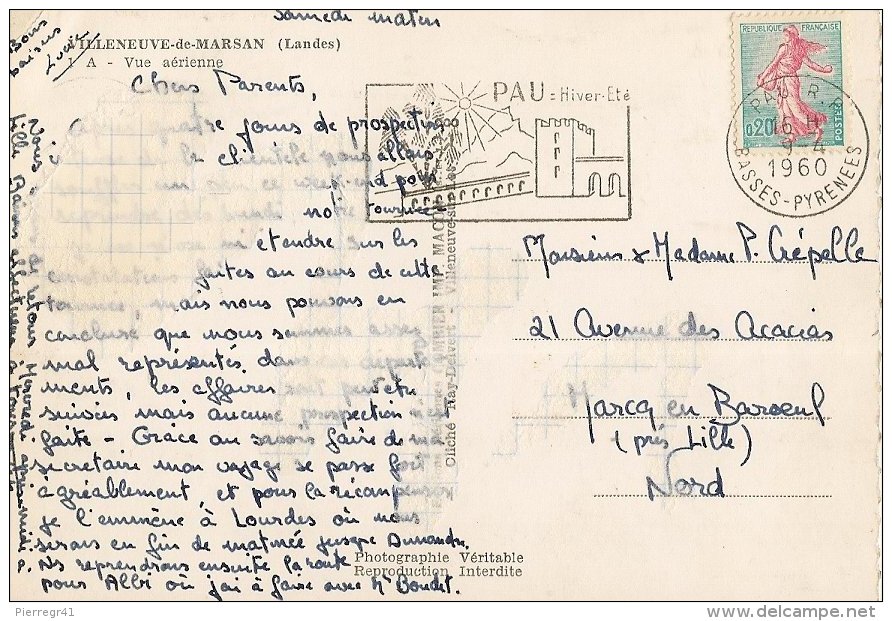 Samedi matin
VILLENEUVE-de-MARSAN (Landes)
1 A - Vue aérienne
Chers Parents,
quatre jours de prospection
de la clientèle nous allons
ce week-end pour
notre tournée
ni étendre sur les
constatations faites au cours de cette
tournée, mais nous pouvons en
conclure que nous sommes assez
mal représentés dans ces départe
ments, les affaires sont peut être
suivies mais aucune prospection n'est
faite - Grâce au savoir faire de ma
secrétaire mon voyage se passe fort
agréablement et pour la récompenser
je l'emmène à Lourdes où nous
serons en fin de matinée jusque Dimanche.
Ns reprendrons ensuite la route
pour Albi où j'ai à faire avec Mr Boudet.
Nous de retour Mercredi après-midi à
Lille Baisers affectueux à tous
Bons
baisers
Lucie
Photographie Véritable
Reproduction Interdite
Cliché Ray-Delvert - Villeneuve-s
PAU = Hiver-Eté
REPUBLIQUE FRANÇAISE
0,20
POSTES
PAU R.P.
16 H
9-4
1960
BASSES-PYRENEES
Monsieur & Madame P. Crépelle
21 Avenue des Acacias
Marcq en Baroeul
(près Lille)
Nord
Pierregr41
www.delcampe.net